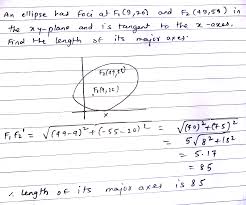 An ellipse has foci at F₁(9,20) and F₂(49,55) in
the xy-plane and is tangent to the x-axes.
Find the length of its major axes.
F₂(49,55)
F₁(9,20)
x
F₁F₂' = √(49-9)² + (-55-20)² = √(40)² + (75)²
= 5√8² + 15²
= 5·17
= 85
∴ Length of its major axes is 85